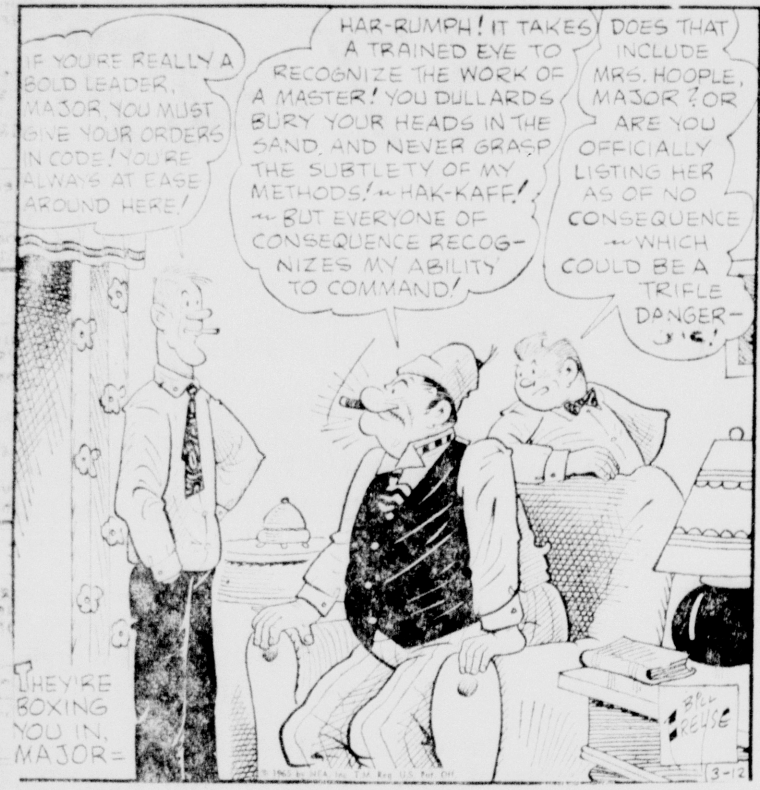 IF YOU'RE REALLY A
BOLD LEADER,
MAJOR, YOU MUST
GIVE YOUR ORDERS
IN CODE! YOU'RE
ALWAYS AT EASE
AROUND HERE!
HAR-RUMPH! IT TAKES
A TRAINED EYE TO
RECOGNIZE THE WORK OF
A MASTER! YOU DULLARDS
BURY YOUR HEADS IN THE
SAND, AND NEVER GRASP
THE SUBTLETY OF MY
METHODS! ~ HAK-KAFF!
~ BUT EVERYONE OF
CONSEQUENCE RECOG-
NIZES MY ABILITY
TO COMMAND!
DOES THAT
INCLUDE
MRS. HOOPLE,
MAJOR? OR
ARE YOU
OFFICIALLY
LISTING HER
AS OF NO
CONSEQUENCE
~ WHICH
COULD BE A
TRIFLE
DANGER-
THEY'RE
BOXING
YOU IN,
MAJOR=
BILL
FREYSE
3-12
© 1965 by NEA, Inc. T.M. Reg. U.S. Pat. Off.